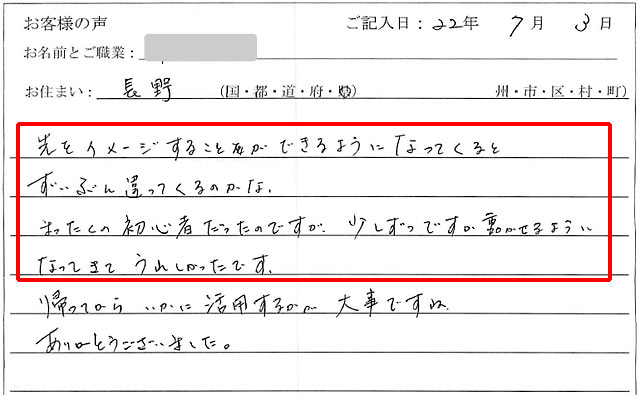 お客様の声 ご記入日：22年 7月 3日
お名前とご職業：
お住まい：長野 (国・都・道・府・県) 州・市・区・村・町)
先をイメージすることができるようになってくると
ずいぶん違ってくるのかな。
まったくの初心者だったのですが、少しずつですが動かせるように
なってきて うれしかったです。
帰ってから いかに活用するかが 大事ですね
ありがとうございました。